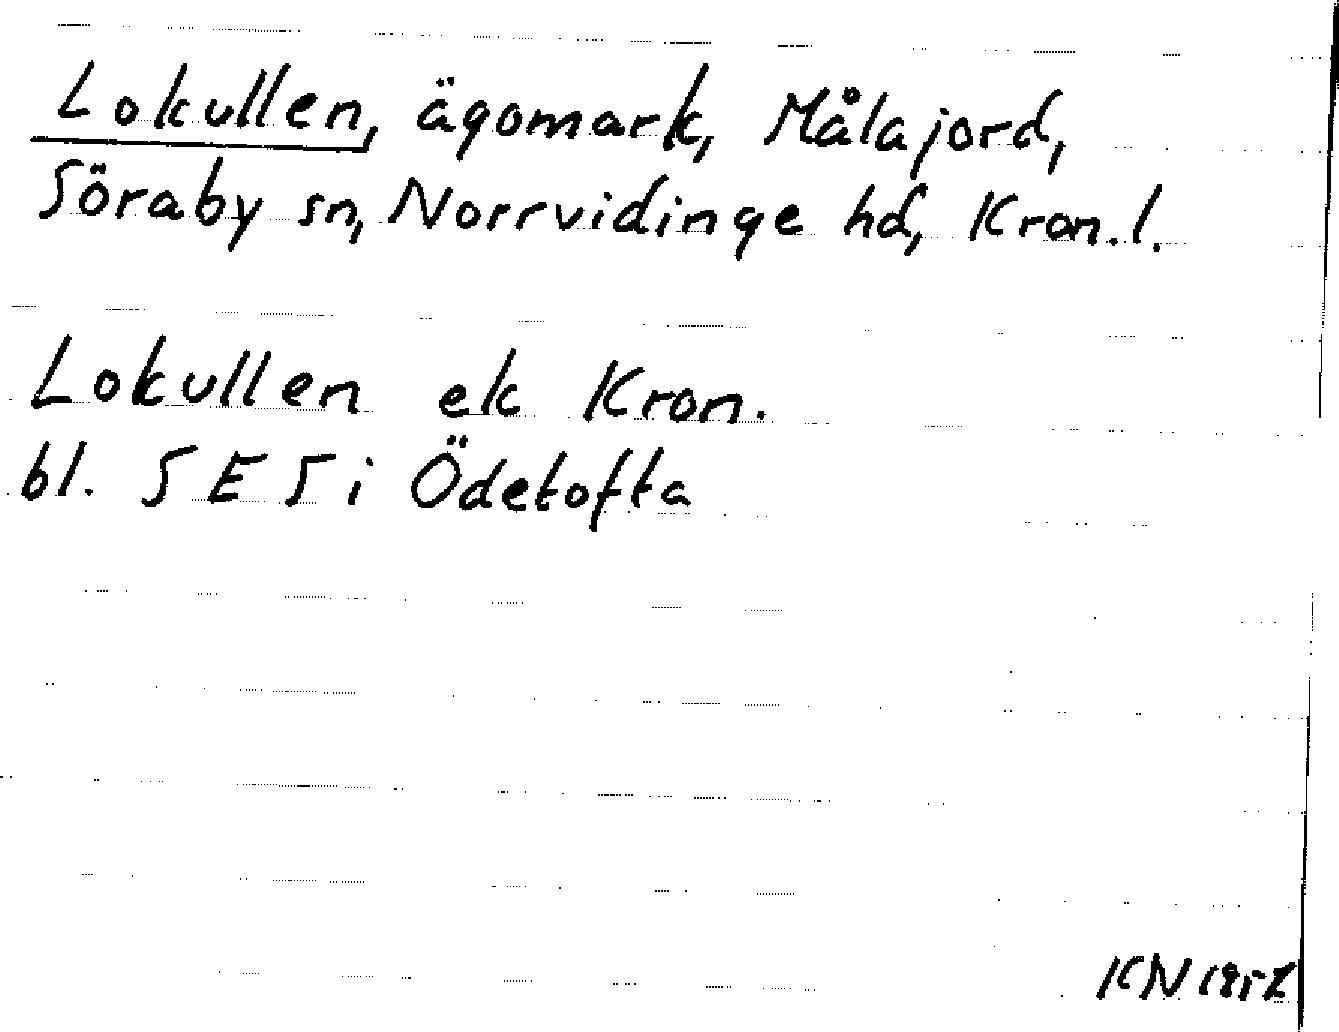 Lokullen, ägomark, Målajord,
Söraby sn, Norrvidinge hd, Kron. l.
Lokullen ek Kron.
bl. 5 E 5 i Ödetofta
KN 1952